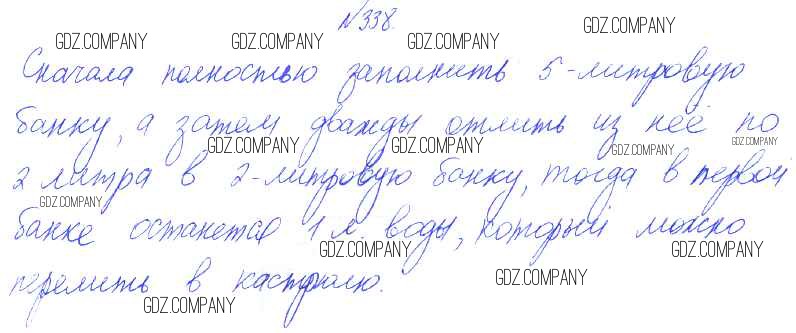 №338.
Сначала полностью заполнить 5-литровую
банку, а затем дважды отлить из неё по
2 литра в 2-литровую банку, тогда в первой
банке останется 1 л. воды, который можно
перелить в кастрюлю.
GDZ.COMPANY GDZ.COMPANY GDZ.COMPANY GDZ.COMPANY
GDZ.COMPANY GDZ.COMPANY GDZ.COMPANY GDZ.COMPANY
GDZ.COMPANY
GDZ.COMPANY GDZ.COMPANY GDZ.COMPANY
GDZ.COMPANY